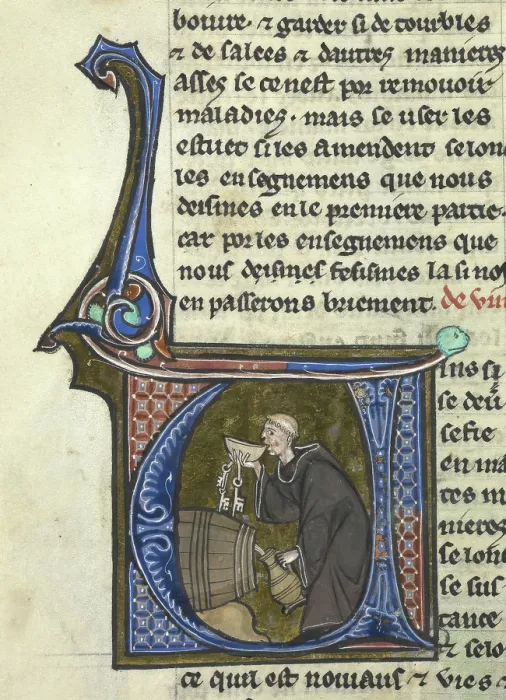 boiure · ⁊ garder si de tourbles
⁊ de salees ⁊ dautres manieres
asses se cenest por remouoir
maladies · mais se user les
estuet si les amendent selonc
les ensegnemens que nous
desimes en le premiere partie ·
car por les ensegnemens que
nous desimes fesismes la si nos
en passerons briement. de vin
ins si
se deu
sefie
en ma
tes m
nieres
se lonc
se sus
tance
⁊ selo
ce quil est nouiaus ⁊ vies ⁊